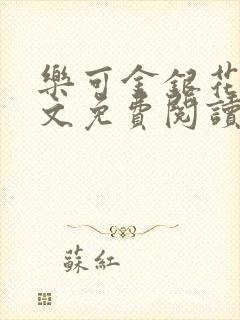 樂可金銀花
文免費閱讀
蘇紅